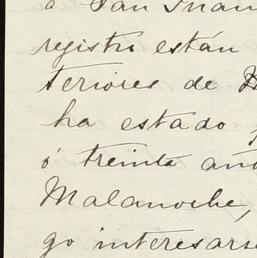 á San Juan
registro están
teriores de
ha estado
ó treinta añ
Malanoche,
go interesars